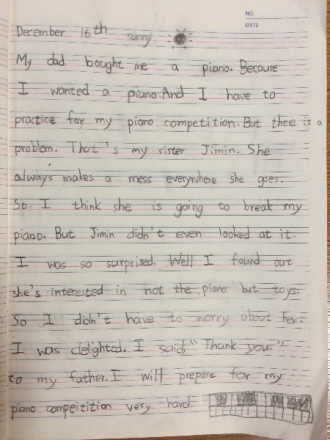 NO.
DATE
December 16th sunny!
My dad bought me a piano. Because
I wanted a piano. And I have to
practice for my piano competition. But thee is a
problem. That's my sister Jimin. She
always makes a mess everywhere she goes.
So I think she is going to break my
piano. But Jimin didn't even looked at it.
I was so surprised. Well I found out
she's interested in not the piano but toys.
So I didn't have to worry about her.
I was delighted. I said "Thank you"
to my father. I will prepare for my
piano competition very hard.